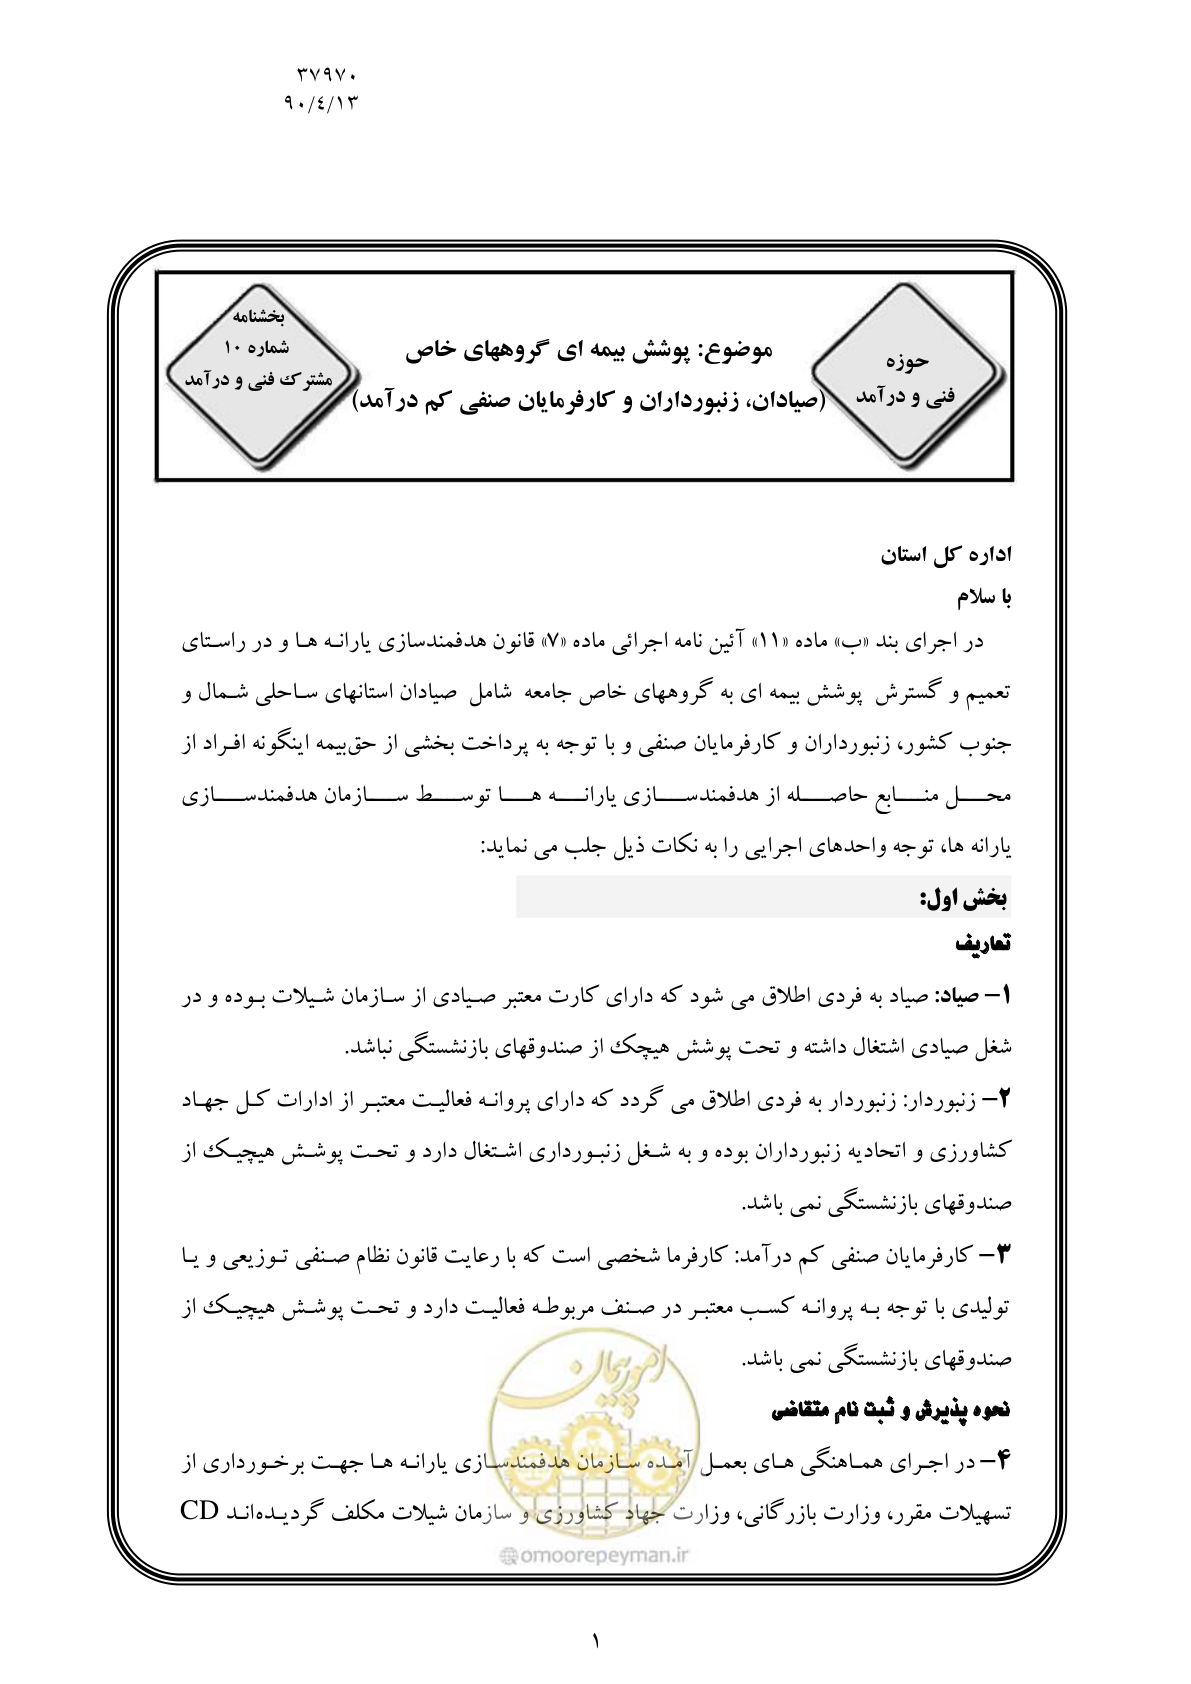 ۳۷۹۷۰
۹۰/٤/۱۳
حوزه
فنی و درآمد
موضوع: پوشش بیمه ای گروههای خاص
(صیادان، زنبورداران و کارفرمایان صنفی کم درآمد)
بخشنامه
شماره ۱۰
مشترک فنی و درآمد
اداره کل استان
با سلام
در اجرای بند «ب» ماده «۱۱» آئین نامه اجرائی ماده «۷» قانون هدفمندسازی یارانه ها و در راستای
تعمیم و گسترش پوشش بیمه ای به گروههای خاص جامعه شامل صیادان استانهای ساحلی شمال و
جنوب کشور، زنبورداران و کارفرمایان صنفی و با توجه به پرداخت بخشی از حق‌بیمه اینگونه افراد از
محل منابع حاصله از هدفمندسازی یارانه ها توسط سازمان هدفمندسازی
یارانه ها، توجه واحدهای اجرایی را به نکات ذیل جلب می نماید:
بخش اول:
تعاریف
۱– صیاد: صیاد به فردی اطلاق می شود که دارای کارت معتبر صیادی از سازمان شیلات بوده و در
شغل صیادی اشتغال داشته و تحت پوشش هیچک از صندوقهای بازنشستگی نباشد.
۲– زنبوردار: زنبوردار به فردی اطلاق می گردد که دارای پروانه فعالیت معتبر از ادارات کل جهاد
کشاورزی و اتحادیه زنبورداران بوده و به شغل زنبورداری اشتغال دارد و تحت پوشش هیچیک از
صندوقهای بازنشستگی نمی باشد.
۳– کارفرمایان صنفی کم درآمد: کارفرما شخصی است که با رعایت قانون نظام صنفی توزیعی و یا
تولیدی با توجه به پروانه کسب معتبر در صنف مربوطه فعالیت دارد و تحت پوشش هیچیک از
صندوقهای بازنشستگی نمی باشد.
نحوه پذیرش و ثبت نام متقاضی
۴– در اجرای هماهنگی های بعمل آمده سازمان هدفمندسازی یارانه ها جهت برخورداری از
تسهیلات مقرر، وزارت بازرگانی، وزارت جهاد کشاورزی و سازمان شیلات مکلف گردیده‌اند CD
امور پیمان
@omoorepeyman.ir
۱